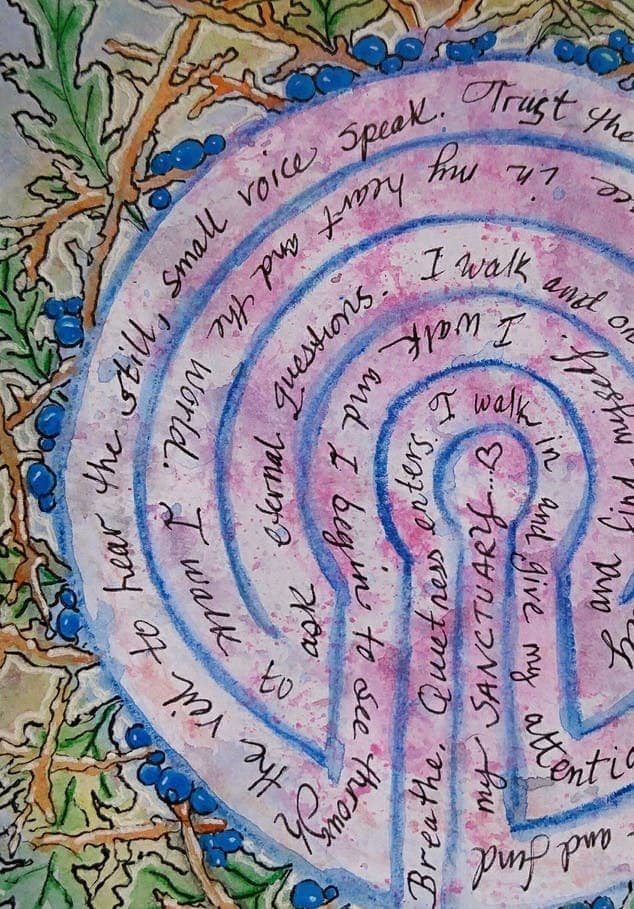 Breathe. Quietness enters. I walk in and give my
and find
myself.
I walk and I begin to see through
the veil to hear the still, small voice speak. Trust the
in my heart and the world. I want
to ask eternal questions. I walk and
and find
my SANCTUARY...